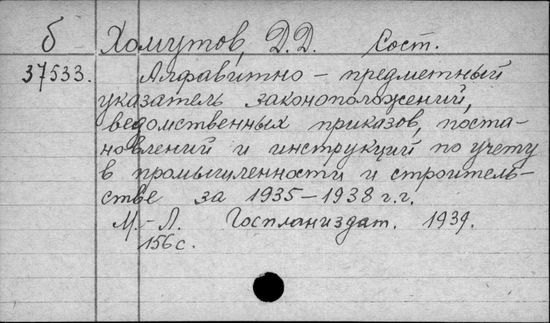 б Хомутов, Д.Д. Сост.
37533. Алфавитно – предметный
указатель законоположений,
ведомственных приказов, поста-
новлений и инструкций по учету
в промышленности и строитель-
стве за 1935–1938 г.г.
М.-Л. Госпланиздат. 1939.
156 с.